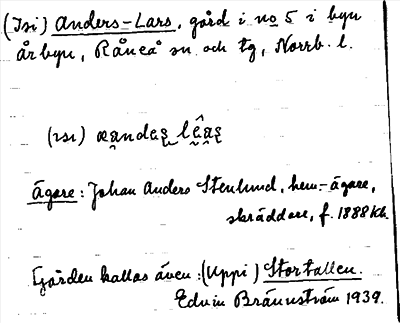 (Isi) Anders-Lars, gård i no 5 i byn
Årbyn, Råneå sn och tg, Norrb. l.
(ısı)
Ägare: Johan Anders Stenlund, hem.-ägare,
skräddare, f. 1888 kh.
Gården kallas även: (Uppi) Stortallen.
Edvin Brännström 1939.